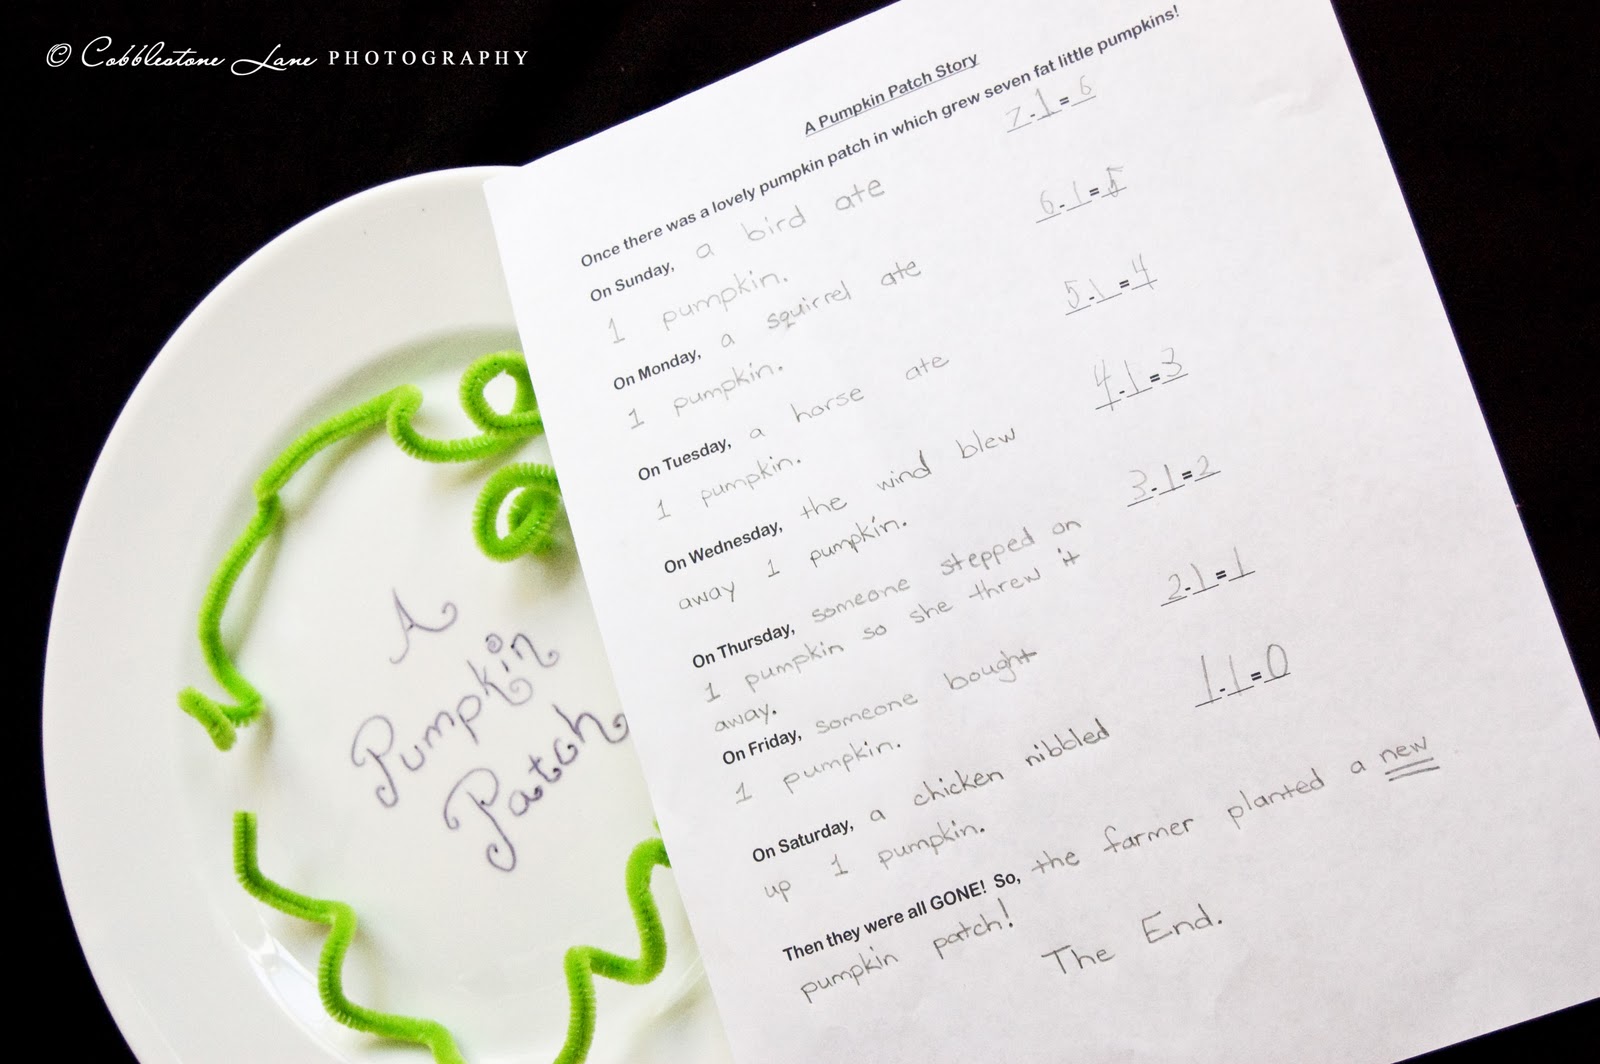 © Cobblestone Lane PHOTOGRAPHY
A Pumpkin Patch Story
Once there was a lovely pumpkin patch in which grew seven fat little pumpkins!
On Sunday, a bird ate
7-1=6
1 pumpkin.
On Monday, a squirrel ate
6-1=5
1 pumpkin.
On Tuesday, a horse ate
5-1=4
1 pumpkin.
On Wednesday, the wind blew
4-1=3
away 1 pumpkin.
On Thursday, someone stepped on
3-1=2
1 pumpkin so she threw it
away.
On Friday, someone bought
2-1=1
1 pumpkin.
On Saturday, a chicken nibbled
1-1=0
up 1 pumpkin.
Then they were all GONE! So, the farmer planted a new
pumpkin patch!
The End.
A
Pumpkin
Patch